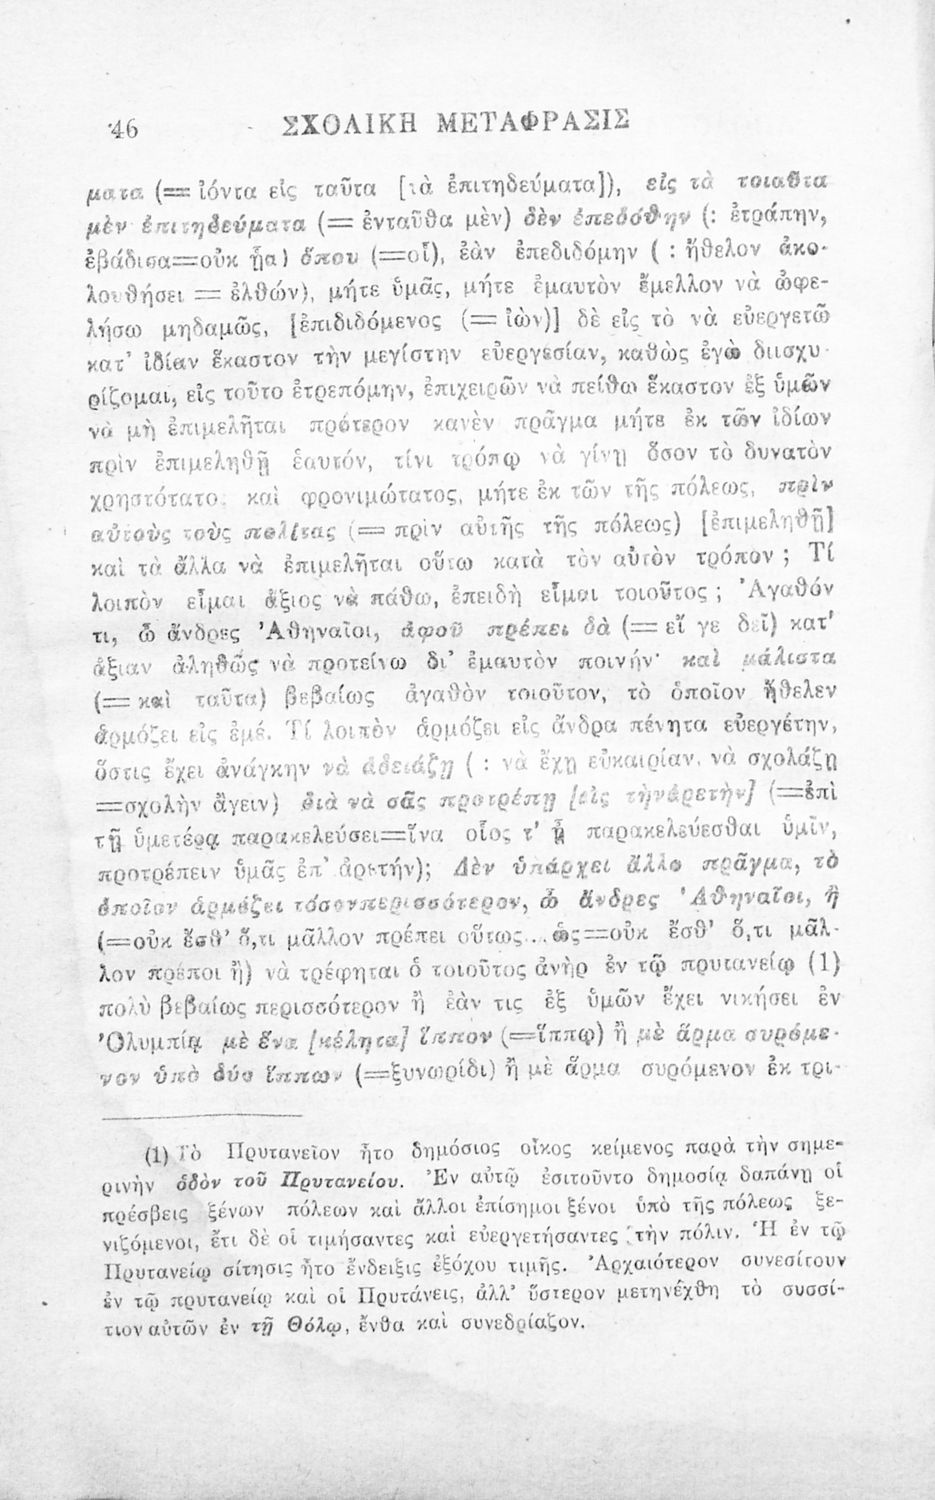 46 ΣΧΟΛΙΚΗ ΜΕΤΑΦΡΑΣΙΣ
ματα (= ἰόντα εἰς ταῦτα [τὰ ἐπιτηδεύματα]), εἰς τὰ τοιαῦτα
μὲν ἐπιτηδεύματα (= ἐνταῦθα μὲν) δὲν ἐπεδόθην (: ἐτράπην,
ἐβάδισα=οὐκ ᾖα) ὅπου (=οἷ), ἐὰν ἐπεδιδόμην ( : ἤθελον ἀκο-
λουθήσει = ἐλθών), μήτε ὑμᾶς, μήτε ἐμαυτὸν ἔμελλον νὰ ὠφε-
λήσω μηδαμῶς, [ἐπιδιδόμενος (= ἰὼν)] δὲ εἰς τὸ νὰ εὐεργετῶ
κατ' ἰδίαν ἕκαστον τὴν μεγίστην εὐεργεσίαν, καθὼς ἐγὼ διισχυ-
ρίζομαι, εἰς τοῦτο ἐτρεπόμην, ἐπιχειρῶν νὰ πείθω ἕκαστον ἐξ ὑμῶν
νὰ μὴ ἐπιμελῆται πρότερον κανὲν πρᾶγμα μήτε ἐκ τῶν ἰδίων
πρὶν ἐπιμεληθῇ ἑαυτόν, τίνι τρόπῳ νὰ γίνῃ ὅσον τὸ δυνατὸν
χρηστότατο. καὶ φρονιμώτατος, μήτε ἐκ τῶν τῆς πόλεως, πρὶν
αὐτοὺς τοὺς πολίτας (= πρὶν αὐτῆς τῆς πόλεως) [ἐπιμεληθῇ]
καὶ τὰ ἄλλα νὰ ἐπιμελῆται οὕτω κατὰ τὸν αὐτὸν τρόπον ; Τί
λοιπὸν εἶμαι ἄξιος νὰ πάθω, ἐπειδὴ εἶμαι τοιοῦτος ; Ἀγαθόν
τι, ὦ ἄνδρες Ἀθηναῖοι, ἀφοῦ πρέπει δὰ (= εἴ γε δεῖ) κατ'
ἀξίαν ἀληθῶς νὰ προτείνω δι' ἐμαυτὸν ποινήν· καὶ μάλιστα
(= καὶ ταῦτα) βεβαίως ἀγαθὸν τοιοῦτον, τὸ ὁποῖον ἤθελεν
ἁρμόζει εἰς ἐμέ. Τί λοιπὸν ἁρμόζει εἰς ἄνδρα πένητα εὐεργέτην,
ὅστις ἔχει ἀνάγκην νὰ ἀδειάζῃ ( : νὰ ἔχῃ εὐκαιρίαν, νὰ σχολάζῃ
=σχολὴν ἄγειν) διὰ νὰ σᾶς προτρέπῃ [εἰς τὴν ἀρετὴν] (=ἐπὶ
τῇ ὑμετέρᾳ παρακελεύσει=ἵνα οἷος τ' ᾖ παρακελεύεσθαι ὑμῖν,
προτρέπειν ὑμᾶς ἐπ' ἀρετήν); Δὲν ὑπάρχει ἄλλο πρᾶγμα, τὸ
ὁποῖον ἁρμόζει τόσον περισσότερον, ὦ ἄνδρες Ἀθηναῖοι, ἢ
(=οὐκ ἔσθ' ὅ,τι μᾶλλον πρέπει οὕτως... ὡς=οὐκ ἔσθ' ὅ,τι μᾶλ-
λον πρέποι ἢ) νὰ τρέφηται ὁ τοιοῦτος ἀνὴρ ἐν τῷ πρυτανείῳ (1)
πολὺ βεβαίως περισσότερον ἢ ἐὰν τις ἐξ ὑμῶν ἔχει νικήσει ἐν
Ὀλυμπίᾳ μὲ ἕνα [κέλητα] ἵππον (=ἵππῳ) ἢ μὲ ἅρμα συρόμε-
νον ὑπὸ δύο ἵππων (=ξυνωρίδι) ἢ μὲ ἅρμα συρόμενον ἐκ τρι-
(1) Τὸ Πρυτανεῖον ἦτο δημόσιος οἶκος κείμενος παρὰ τὴν σημε-
ρινὴν ὁδὸν τοῦ Πρυτανείου. Ἐν αὐτῷ ἐσιτοῦντο δημοσίᾳ δαπάνῃ οἱ
πρέσβεις ξένων πόλεων καὶ ἄλλοι ἐπίσημοι ξένοι ὑπὸ τῆς πόλεως ξε-
νιζόμενοι, ἔτι δὲ οἱ τιμήσαντες καὶ εὐεργετήσαντες τὴν πόλιν. Ἡ ἐν τῷ
Πρυτανείῳ σίτησις ἦτο ἔνδειξις ἐξόχου τιμῆς. Ἀρχαιότερον συνεσίτουν
ἐν τῷ πρυτανείῳ καὶ οἱ Πρυτάνεις, ἀλλ' ὕστερον μετηνέχθη τὸ συσσί-
τιον αὐτῶν ἐν τῇ Θόλῳ, ἔνθα καὶ συνεδρίαζον.